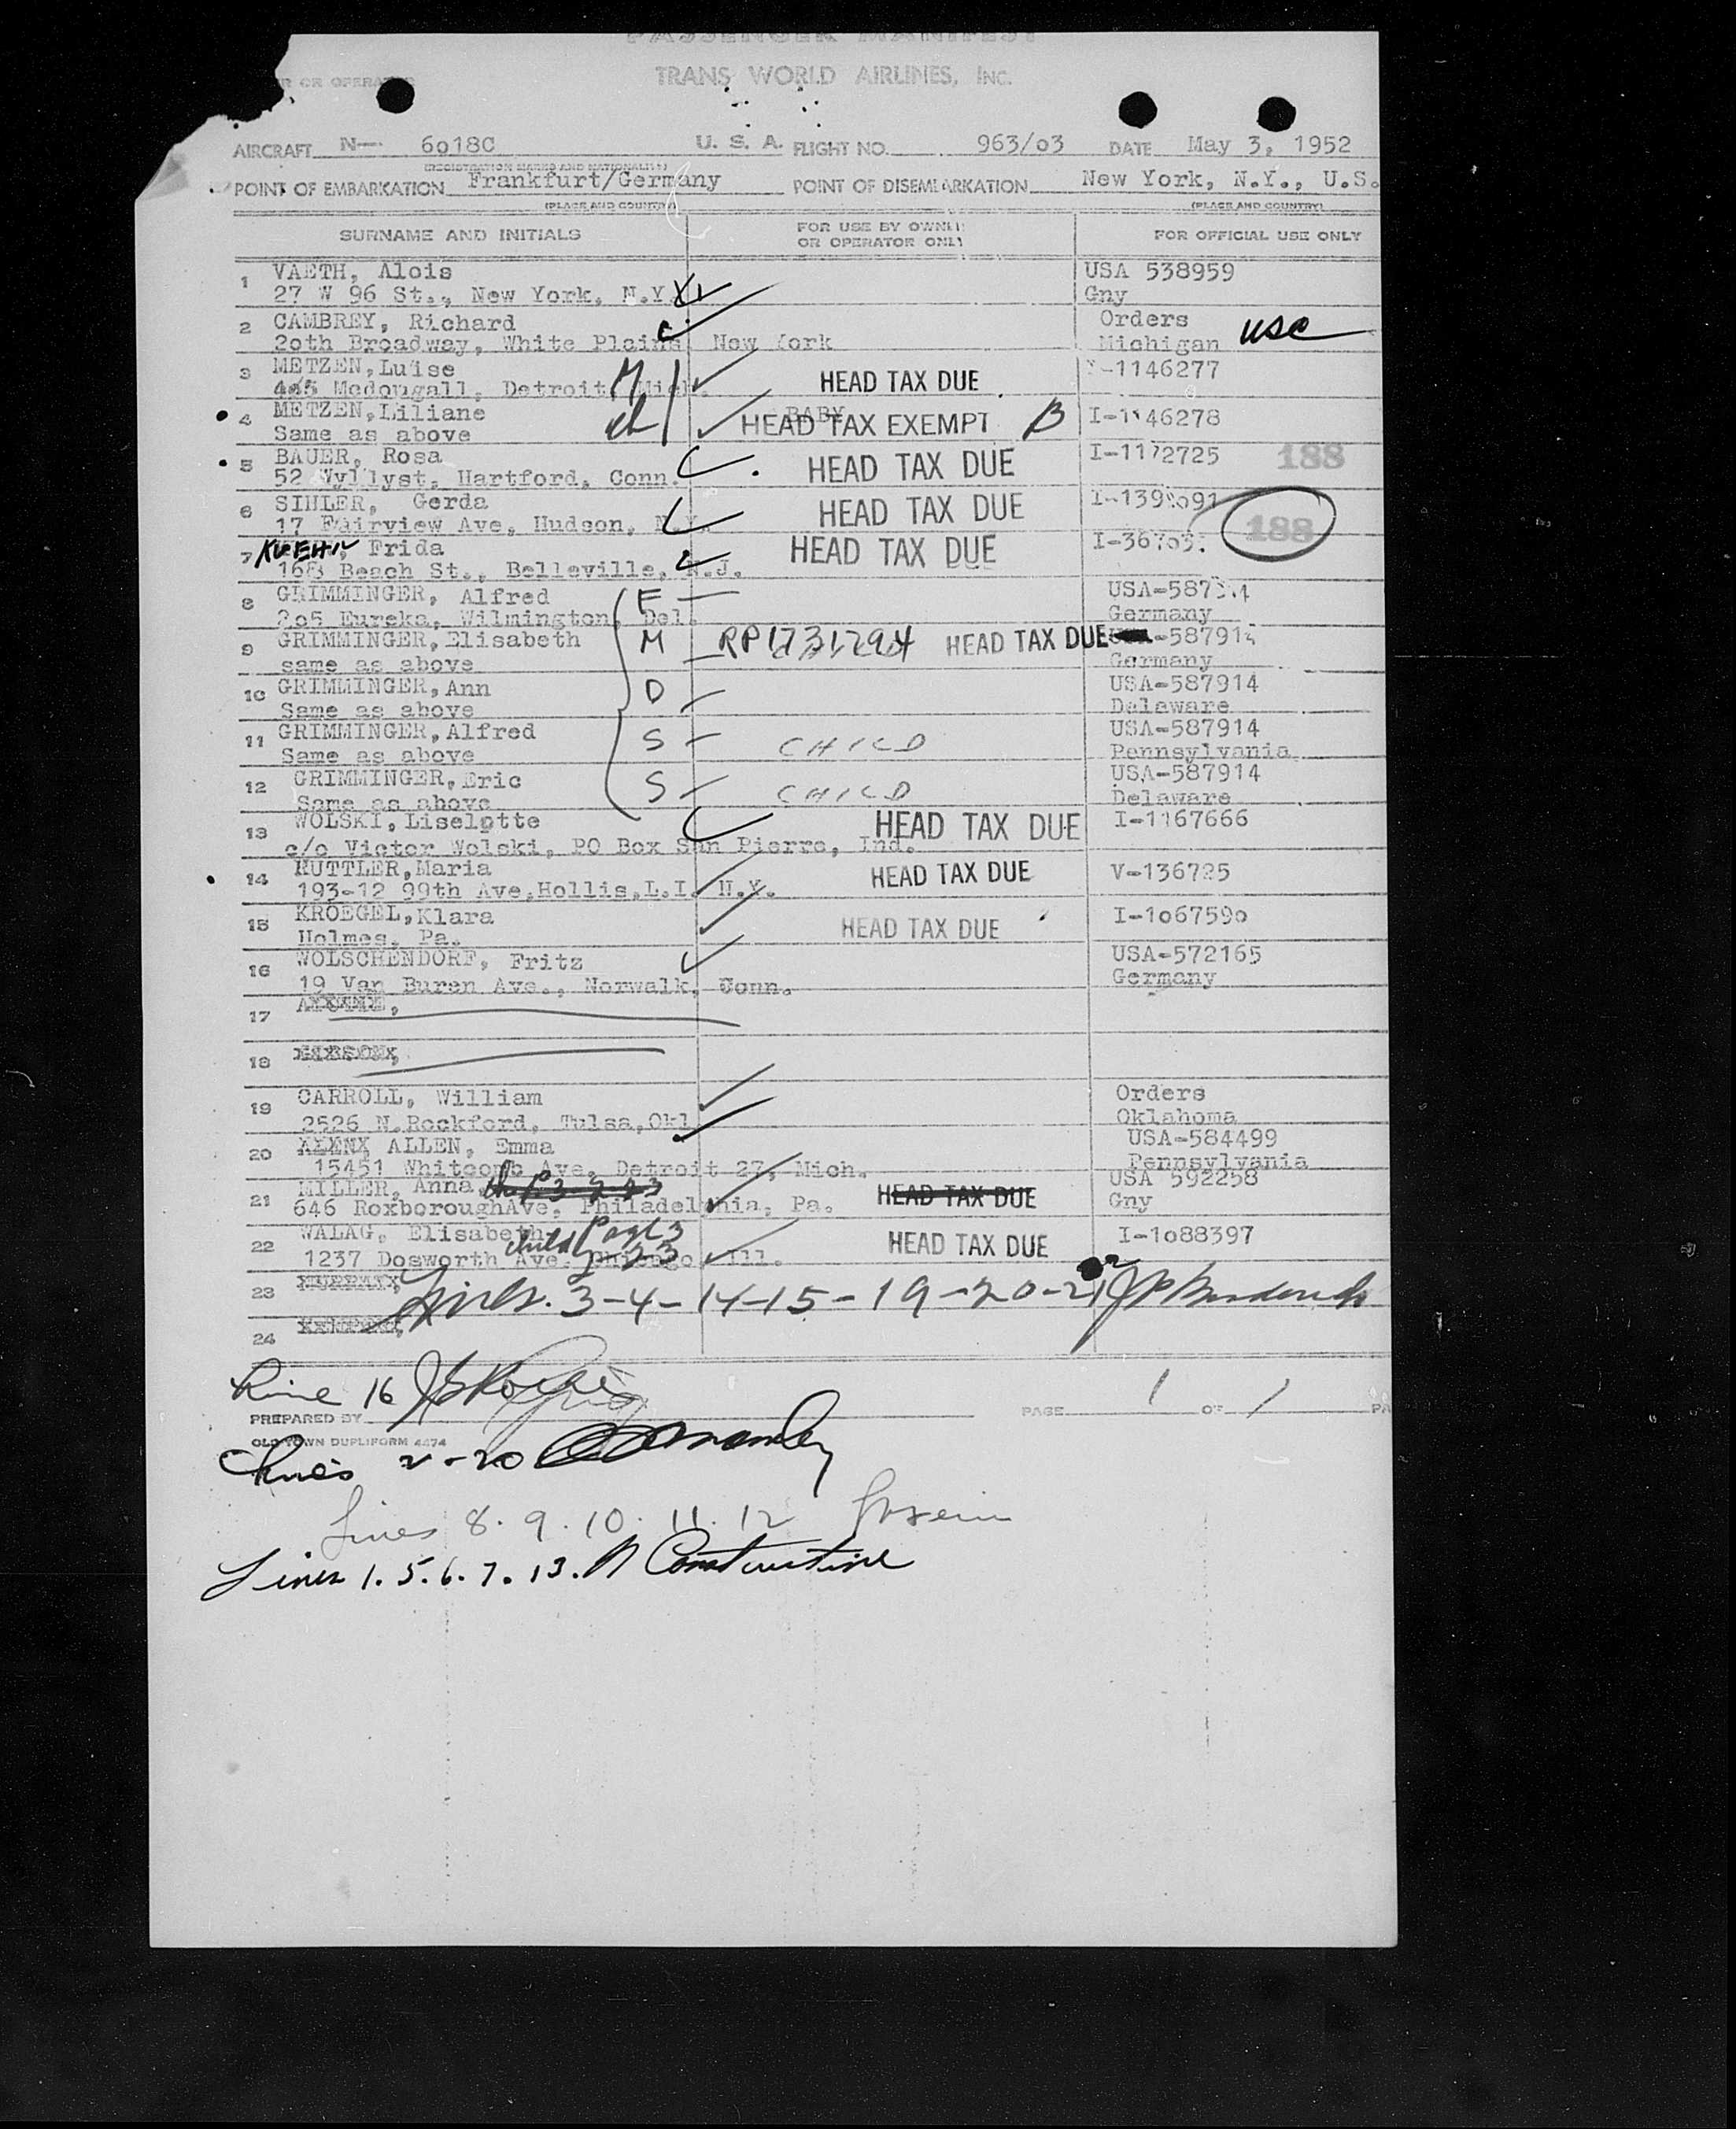 PASSENGER MANIFEST
OR OPERATOR
TRANS WORLD AIRLINES, INC.
AIRCRAFT N— 6018C U. S. A. FLIGHT NO. 963/o3 DATE May 3, 1952
(REGISTRATION MARKS AND NATIONALITY)
POINT OF EMBARKATION Frankfurt/Germany POINT OF DISEMBARKATION New York, N.Y., U.S.
(PLACE AND COUNTRY) (PLACE AND COUNTRY)
SURNAME AND INITIALS FOR USE BY OWNER OR OPERATOR ONLY FOR OFFICIAL USE ONLY
1 VAETH, Alois USA 538959
27 W 96 St., New York, N.Y. Gny
2 CAMBREY, Richard Orders
2oth Broadway, White Plains, New York Michigan usc
3 METZEN, Luise M HEAD TAX DUE -1146277
Mcdougall, Detroit, Mich.
4 METZEN, Liliane ch BABY I-1146278
Same as above HEAD TAX EXEMPT B
5 BAUER, Rosa HEAD TAX DUE I-1172725 188
52 Wyllyst, Hartford, Conn.
6 SIHLER, Gerda HEAD TAX DUE
17 Fairview Ave, Hudson, N.Y. 188
7 KUEHN, Frida HEAD TAX DUE
168 Beach St., Belleville, N.J.
8 GRIMMINGER, Alfred F
2o5 Eureka, Wilmington, Del. Germany
9 GRIMMINGER, Elisabeth M RP1731794 HEAD TAX DUE -587914
same as above Germany
10 GRIMMINGER, Ann D USA-587914
Same as above Delaware
11 GRIMMINGER, Alfred S CHILD USA-587914
Same as above Pennsylvania
12 GRIMMINGER, Eric S CHILD USA-587914
Same as above Delaware
13 WOLSKI, Liselotte HEAD TAX DUE I-1167666
c/o Victor Wolski, PO Box San Pierre, Ind.
14 KUTTLER, Maria HEAD TAX DUE V-136725
193-12 99th Ave, Hollis, L.I. N.Y.
15 KROEGEL, Klara HEAD TAX DUE I-1o6759o
Holmes, Pa.
16 WOLSCHENDORF, Fritz USA-572165
19 Van Buren Ave., Norwalk, Conn. Germany
17
18
19 CARROLL, William Orders
2526 N. Rockford, Tulsa, Okl Oklahoma
20 ALLEN, Emma USA-584499
15451 Whitcomb Ave, Detroit 27, Mich. Pennsylvania
21 MILLER, Anna HEAD TAX DUE USA 592258
646 RoxboroughAve, Philadelphia, Pa. Gny
22 WALAG, Elisabeth child Page 3 HEAD TAX DUE I-1o88397
1237 Dosworth Ave, Chicago, Ill.
23 Lines. 3-4-14-15-19-20-21
24
Line 16
PREPARED BY PAGE 1 OF 1 PA
OLD TOWN DUPLIFORM 4474
Lines 2-20
Lines 8. 9. 10. 11. 12
Lines 1. 5. 6. 7. 13. N Constantine